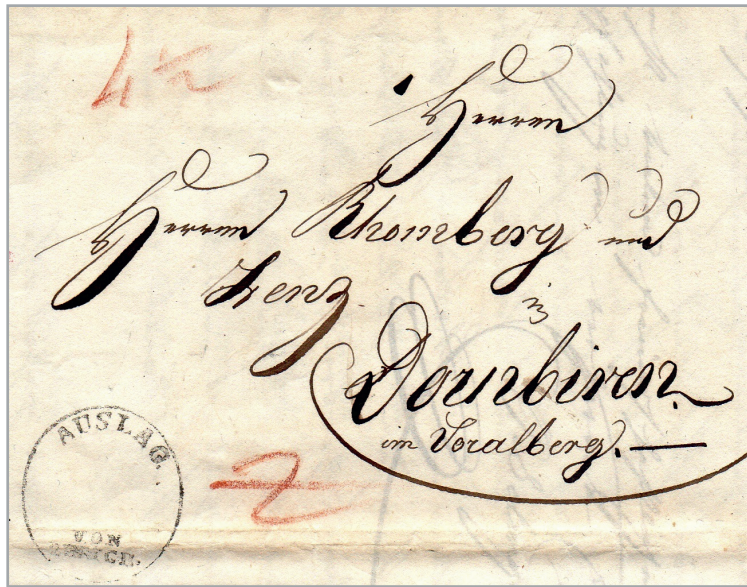 4½
Herren
Herren Rhomberg und
Lenz
in
Dornbiren.
im Voralberg.
AUSLAG.
VON
2